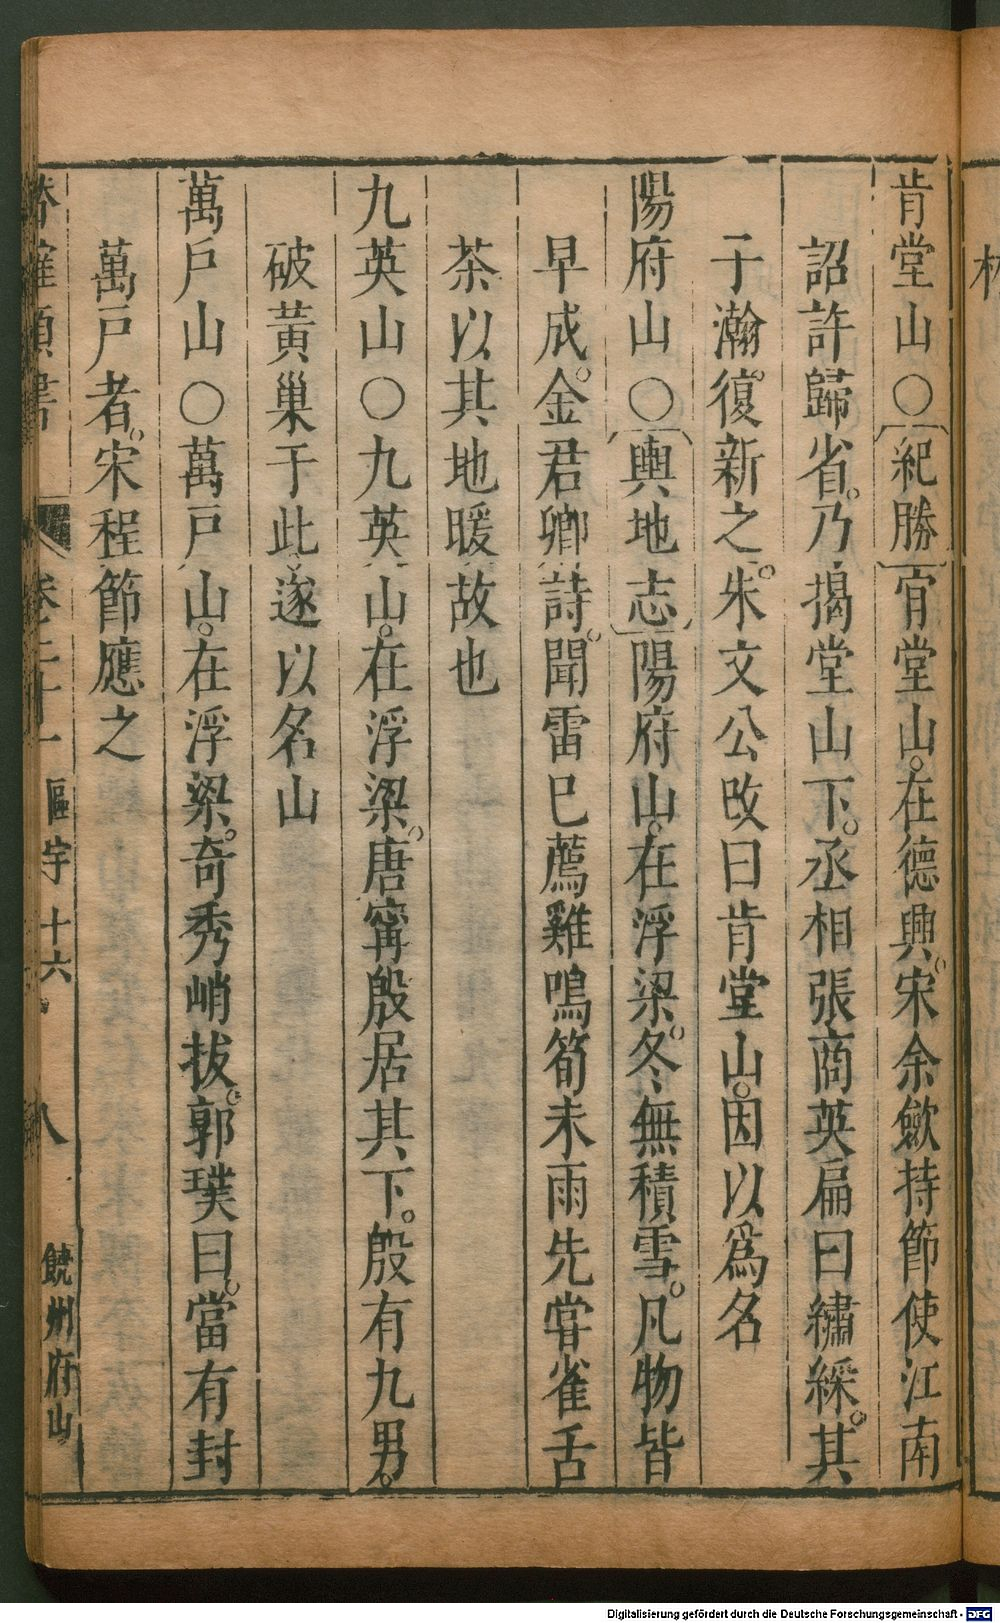 肯堂山○〔紀勝〕肎堂山。在德興。宋余歛持節使江南
詔許歸省。乃揭堂山下。丞相張商英扁曰繡綵。其
于瀚。復新之。朱文公改曰肯堂山。因以爲名
陽府山○〔輿地志〕陽府山。在浮梁。冬無積雪。凡物皆
早成。金君卿詩。聞雷巳薦雞鳴筍未雨先甞雀舌
茶以其地暖故也
九英山○九英山。在浮梁。唐甯殷居其下。殷有九男。
破黃巢于此遂以名山
萬戶山○萬戶山。在浮梁。奇秀峭拔。郭璞曰。當有封
萬戶者。宋程節應之
卷二十一 區宇十六 八 饒州府山
Digitalisierung gefördert durch die Deutsche Forschungsgemeinschaft - DFG